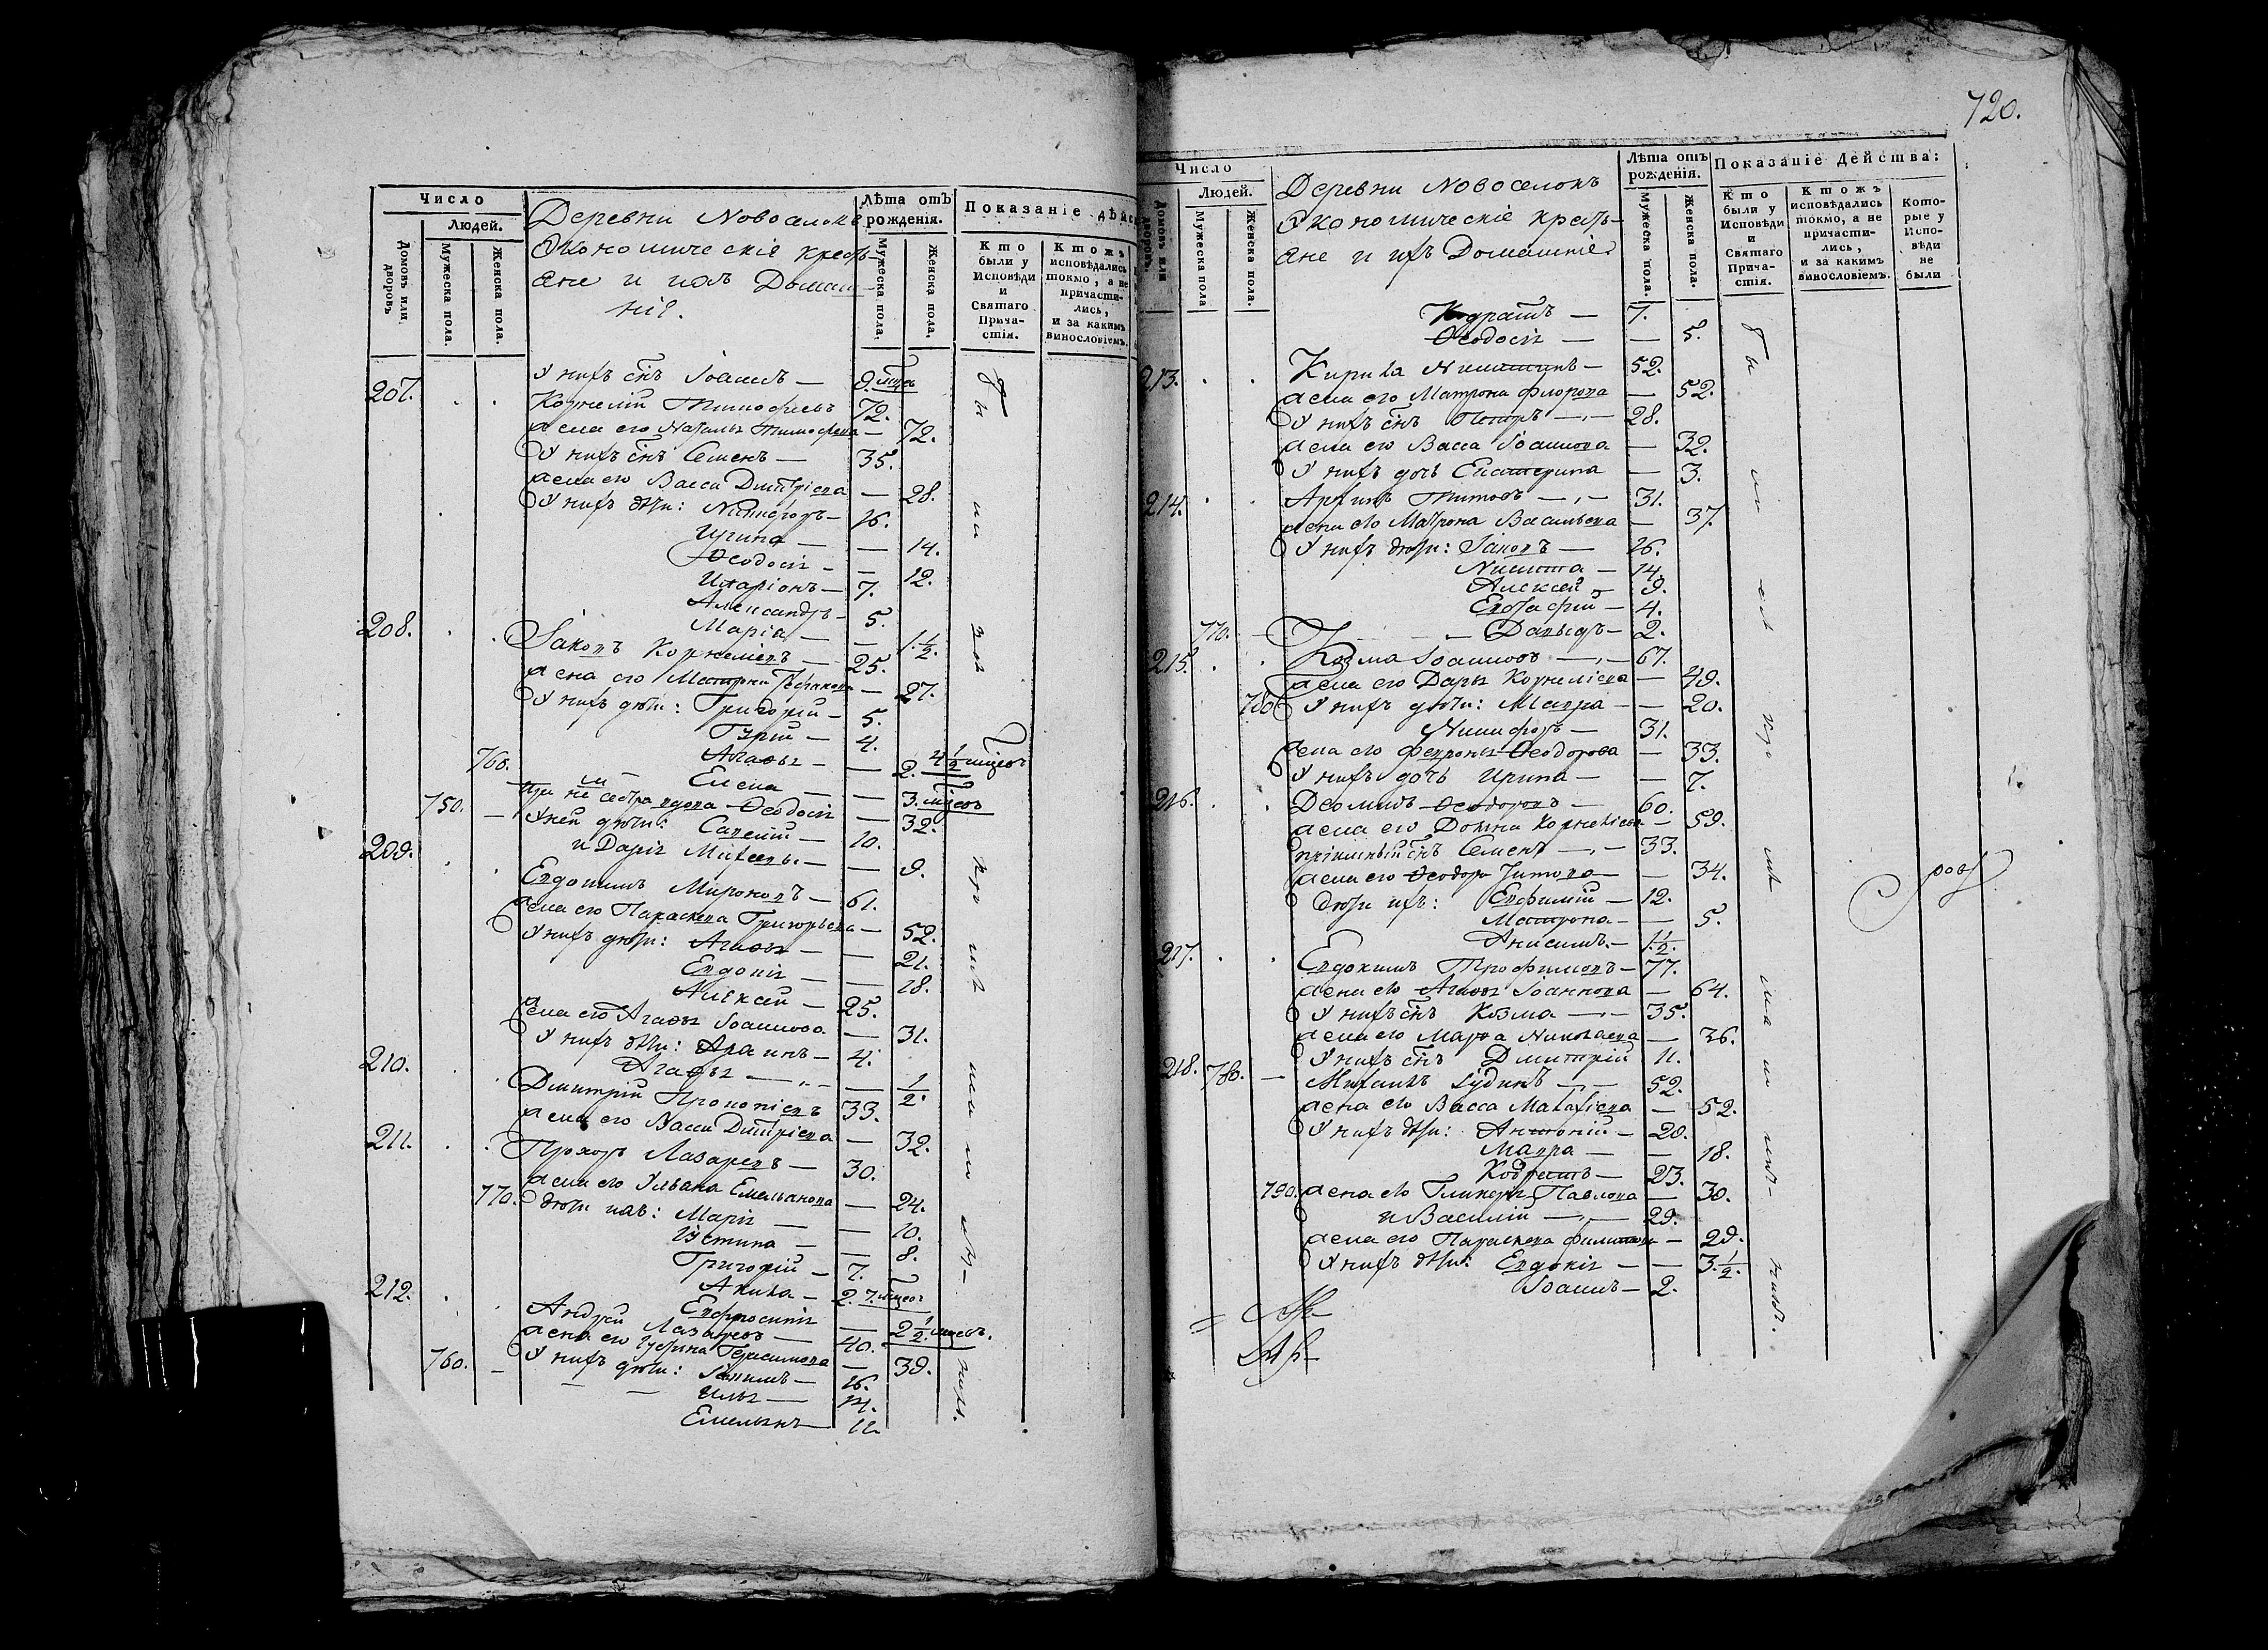 Число
Людей.
Домовъ или дворовъ
Мужеска пола.
Женска пола.
Деревни Новоселокъ
Экономическіе кресть-
яне и ихъ Домаш-
ніе.
Лѣта отъ рожденія.
Мужеска пола.
Женска пола.
Показаніе дѣйс
Кто были у Исповѣди и Святаго Прича-стія.
Ктожъ исповѣдались токмо, а не причасти-лись, и за какимъ винословіемъ.
У нихъ снъ Іоаннъ — 9. мцов
207. Корнелій Тимофеевъ 72.
жена его Наталья Тимофеева — 72.
У нихъ снъ Семенъ — 35.
жена его Васса Дмитріева — 28.
У нихъ дѣти: Никифоръ — 16.
Ирина — 14.
Ѳеодосія — 12.
Иларіонъ — 7.
Александръ — 5.
Марія — 1 1/2.
208. Іаковъ Корнеліевъ — 25.
жена его Матрона — 27.
У нихъ дѣти: Григорій — 5.
Гурій — 4.
Агафья — 2. 4 1/2 мцов
760. Елена — 3. мцов
сестра вдова Ѳеодосія — 32.
750. У ней дѣти: Савелій — 10.
и Дарія — 9.
209. Евдокимъ Мироновъ — 61.
жена его Параскева Григорьева — 52.
У нихъ дѣти: Агафья — 21.
Евдокія — 18.
Алексей — 25.
жена его Агафья Іоаннова — 31.
У нихъ дѣти: — 4.
Агафья — 1/2.
210. Дмитрій Прокопіевъ 33.
жена его Васса Дмитріева — 32.
211. Прохоръ Лазаревъ — 30.
жена его Ульяна Емельянова — 24.
770. дѣти ихъ: Марія — 10.
Устина — 8.
Григорій — 7.
Акила — 2. 7. мцов
Евфросинія — 2 1/2. мцовъ.
212. Андрей Лазаревъ — 40.
жена его Герасимова — 39.
У нихъ дѣти: — 16.
760. Илья — 14.
Емельянъ — 11.
720.
Число
Людей.
Домовъ или дворовъ.
Мужеска пола
Женска пола.
Деревни Новоселокъ
Экономическіе кресть-
яне и ихъ Домашніе
Лѣта отъ рожденія.
Мужеска пола.
Женска пола.
Показаніе Действа:
Кто были у Исповѣди и Святаго Прича-стія.
Ктожъ исповѣдались токмо, а не причасти-лись, и за какимъ винословіемъ.
Кото-рые у Испо-вѣди не были
Кодратъ — 7.
Ѳеодосія — 5.
213. Кирила Никитинъ — 52.
жена его Матрона Флорова — 52.
У нихъ снъ Петръ — 28.
жена его Васса Іоаннова — 32.
У нихъ дочь Екатерина — 3.
214. Архипъ Титовъ — 31.
жена его Матрона Васильева — 37.
У нихъ дѣти: Іаковъ — 16.
Никита — 14.
Алексей — 9.
Евстафій — 4.
770. Давыдъ — 2.
215. Козма Іоанновъ — 67.
жена его Дарья Корнеліева — 49.
780 У нихъ дѣти: Мавра — 20.
Никифоръ — 31.
жена его Февронья Ѳеодорова — 33.
У нихъ дочь Ирина — 7.
216. Деомидъ Ѳеодоровъ — 60.
жена его Домна Корнеліева — 59.
пріимный снъ Семенъ — 33.
жена его Ѳеодора Титова — 34.
дѣти ихъ: Евфимій — 12.
Матрона — 5.
Анисимъ — 1 1/2.
217. Евдокимъ Трофимовъ — 77.
жена его Агафья Іоаннова — 64.
У нихъ снъ Козма — 35.
жена его Марфа Николаева — 36.
У нихъ снъ Дмитрій 11.
218. 780. — 52.
жена его Васса — 52.
У нихъ дѣти: Антоній — 20.
Мавра — 18.
Кодратъ — 23.
790. жена его Гликерья Павлова — 30.
и Василій — 29.
жена его Параскева — 29.
У нихъ дѣти: Евдокія — 3 1/2.
Іоаннъ — 2.